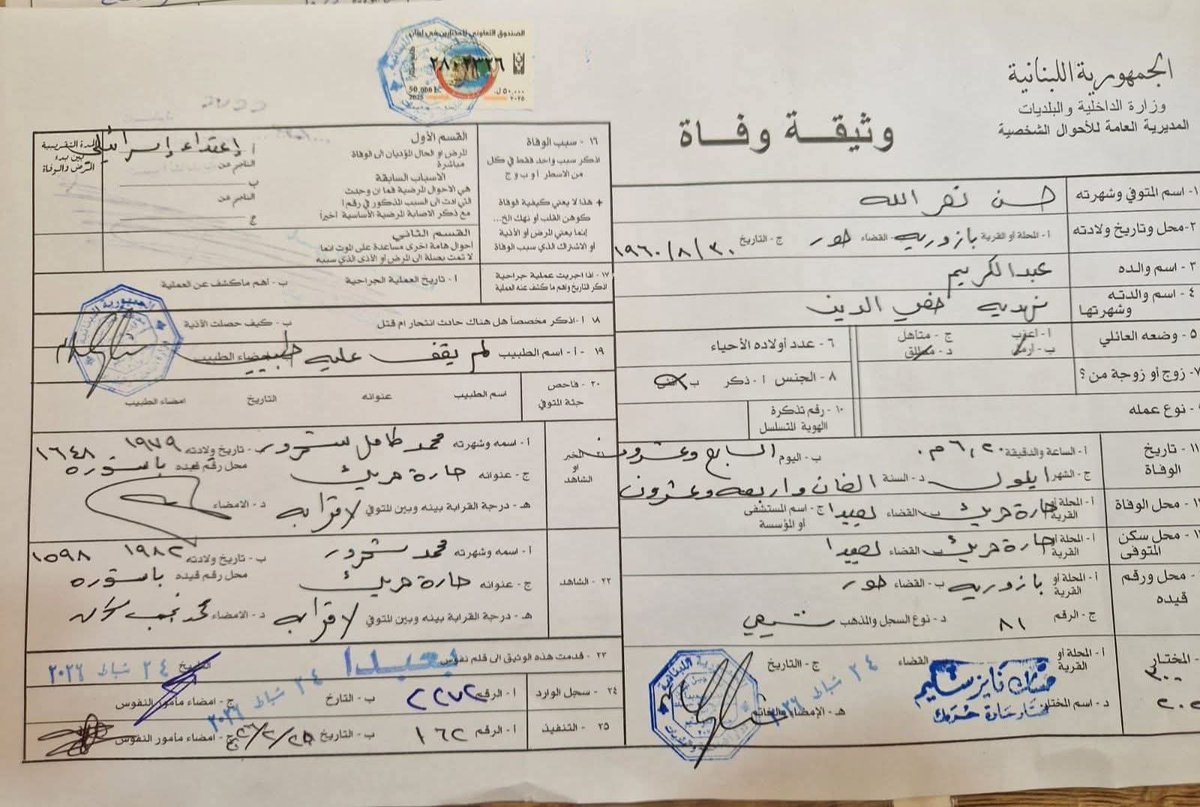 الصندوق التعاوني للمختارين في لبنان
٢٨٠٢٣٣٦
50,000 L
٥٠,٠٠٠ ل.
2025
٢٠٢٥
الجمهورية اللبنانية
وزارة الداخلية والبلديات
المديرية العامة للأحوال الشخصية
وثيقة وفاة
١- اسم المتوفي وشهرته
حسن نصر الله
٢- محل وتاريخ ولادته
أ- المحلة أو القرية بازوريه ب- القضاء صور ج- التاريخ ١٩٦٠/٨/٣٠
٣- اسم والده
عبد الكريم
٤- اسم والدته وشهرتها
نهديه صفي الدين
٥- وضعه العائلي
أ- اعزب ج- متأهل
ب- أرمل د- مطلق
٦- عدد أولاده الأحياء
٧- زوج أو زوجة من؟
٨- الجنس أ- ذكر ب- انثى
نوع عمله
١٠- رقم تذكرة الهوية المتسلسل
١١- تاريخ الوفاة
أ- الساعة والدقيقة ٦,٢٠ م. ب- اليوم السابع وعشرون
ج- الشهر ايلول د- السنة الفان واربعه وعشرون
محل الوفاة
أ- المحلة أو القرية حارة حريك ب- القضاء بعبدا ج- اسم مستشفى أو مؤسسة
محل سكن المتوفى
أ- المحلة أو القرية حارة حريك القضاء بعبدا
محل ورقم قيده
أ- المحلة أو القرية بازوريه ب- القضاء صور
ج- الرقم ٨١ د- نوع السجل والمذهب شيعي
المختار
أ- المحلة أو القرية القضاء ج- التاريخ ٢٤ شباط ٢٠٢٦
د- اسم المختار هـ- الإمضاء والخاتم
مختار حارة حريك
١٦- سبب الوفاة
اذكر سبب واحد فقط في كل من الاسطر أ و ب و ج
+ هذا لا يعني كيفية الوفاة كوهن القلب أو نهك الخ...
إنما يعني المرض أو الأذية أو الاشتراك الذي سبب الوفاة
القسم الأول
المرض أو الحال المؤديان الى الوفاة مباشرة
الاسباب السابقة
هي الاحوال المرضية فما ان وجدت التي ادت الى السبب المذكور في رقم أ
مع ذكر الاصابة المرضية الأساسية أخيراً
القسم الثاني
أحوال هامة أخرى مساعدة على الموت انما لا تمت بصلة الى المرض أو الأذى الذي سببه
أ إعتداء إسرائيلي
الناتج عن
ب
الناتج عن
ج
المدة التقريبية بين بدء المرض والوفاة
١٧- اذا اجريت عملية جراحية اذكر تاريخ واهم ما كشفت عنه العملية
أ- تاريخ العملية الجراحية ب- اهم ماكشف عن العملية
١٨- أ- اذكر مخصصاً هل هناك حادث انتحار ام قتل ب- كيف حصلت الأذية
١٩- أ- اسم الطبيب لم يقف عليه طبيب ب- امضاء الطبيب
٢٠- فاحص جثة المتوفي
اسم الطبيب عنوانه التاريخ امضاء الطبيب
المخبر أو الشاهد
أ- اسمه وشهرته محمد كامل شحرور ب- تاريخ ولادته ١٩٧٩ ١٦٤٨
ج- عنوانه حارة حريك محل رقم قيده باشوره
هـ- درجة القرابة بينه وبين المتوفي لا قرابه د- الامضاء
٢٢- الشاهد
أ- اسمه وشهرته محمد شحرور ب- تاريخ ولادته ١٩٨٢ ١٥٩٨
ج- عنوانه حارة حريك محل رقم قيده باشوره
هـ- درجة القرابة بينه وبين المتوفي لا قرابه د- الامضاء
٢٣- قدمت هذه الوثيق الى قلم نفوس بعبدا تاريخ ٢٤ شباط ٢٠٢٦
٢٤- سجل الوارد أ- الرقم ٢٢٧٢ ب- التارخ ٢٤ شباط ٢٠٢٦ ج- امضاء مأمور النفوس
٢٥- التنفيذ أ- الرقم ١٦٢ ب- التاريخ ج- امضاء مأمور النفوس